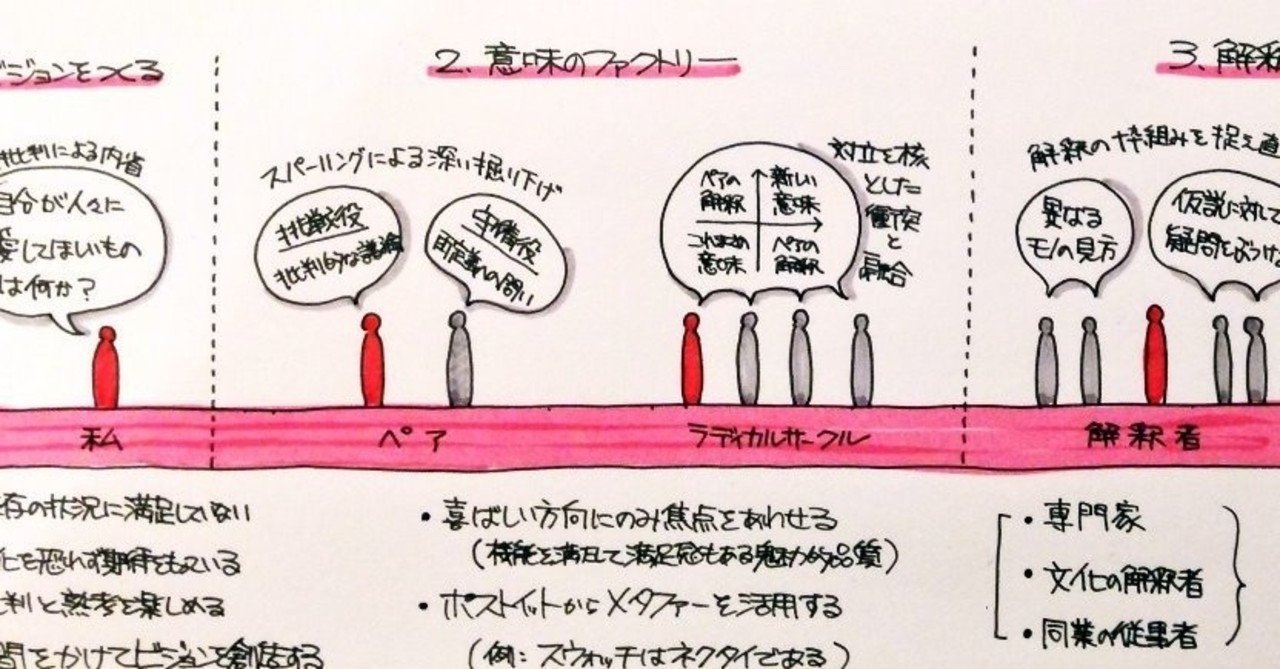 ビジョンをつくる
批判による内省
自分が人々に
愛してほしいもの
は何か？
私
存の状況に満足していない
化を恐れず期待をもっている
判と熟考を楽しめる
間をかけてビジョンを創造する
2. 意味のファクトリー
スパーリングによる深い掘り下げ
挑戦役
批判的な議論
守備役
再定義への問い
ペア
対立を核
とした
衝突
と
融合
ペアの
解釈
新しい
意味
これまでの
意味
ペアの
解釈
ラディカルサークル
・喜ばしい方向にのみ焦点をあわせる
(機能を満たして満足感もある魅力的品質)
・ポストイットからメタファーを活用する
(例: スウォッチはネクタイである)
3. 解釈
解釈の枠組みを捉え直
異なる
モノの見方
仮説に対して
疑問をぶつける
解釈者
・専門家
・文化の解釈者
・同業の従業者